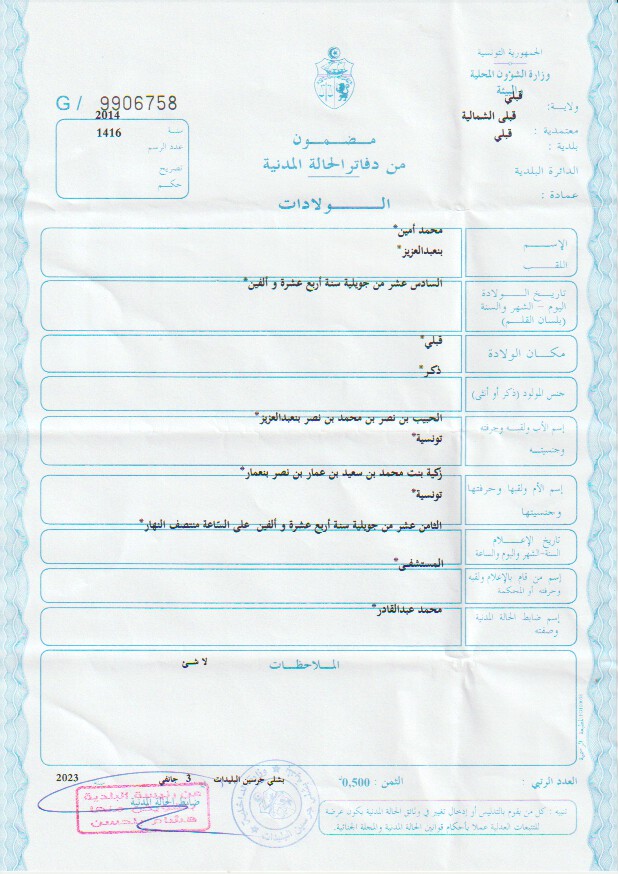 الجمهورية التونسية
وزارة الشؤون المحلية
و البيئة
ولاية: قبلي
معتمدية: قبلى الشمالية
بلدية: قبلي
الدائرة البلدية
عمادة:
G / 9906758
سنة 2014
عدد الرسم 1416
تصريح
حكم
مضمون
من دفاتر الحالة المدنية
الولادات
الإسم محمد أمين*
اللقب بنعبدالعزيز*
تاريخ الولادة السادس عشر من جويلية سنة أربع عشرة و ألفين*
اليوم - الشهر والسنة
(بلسان القلم)
مكان الولادة قبلي*
جنس المولود (ذكر أو أنثى) ذكر*
إسم الأب ولقبه وحرفته الحبيب بن نصر بن محمد بن نصر بنعبدالعزيز*
وجنسيته تونسية*
إسم الأم ولقبها وحرفتها زكية بنت محمد بن سعيد بن عمار بن نصر بنعمار*
وجنسيتها تونسية*
تاريخ الإعلام الثامن عشر من جويلية سنة أربع عشرة و ألفين على السّاعة منتصف النهار*
السنة-الشهر واليوم والساعة
إسم من قام بالإعلام ولقبه المستشفى*
وحرفته أو المحكمة
إسم ضابط الحالة المدنية محمد عبدالقادر*
وصفته
الملاحظات
لا شئ
العدد الرتبي: الثمن: 0,500.
بشلي جرسين البليدات 3 جانفي 2023
ضابط الحالة المدنية
عن رئيسة البلدية
تنبيه: كل من يقوم بالتدليس أو إدخال تغيير في وثائق الحالة المدنية يكون عرضة
للتتبعات العدلية عملا بأحكام قوانين الحالة المدنية والمجلة الجنائية.